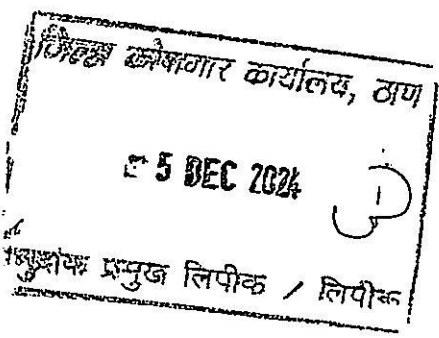 जिल्हा कोषागार कार्यालय, ठाण
5 DEC 2024
मुद्रांक प्रमुख लिपीक / लिपीक